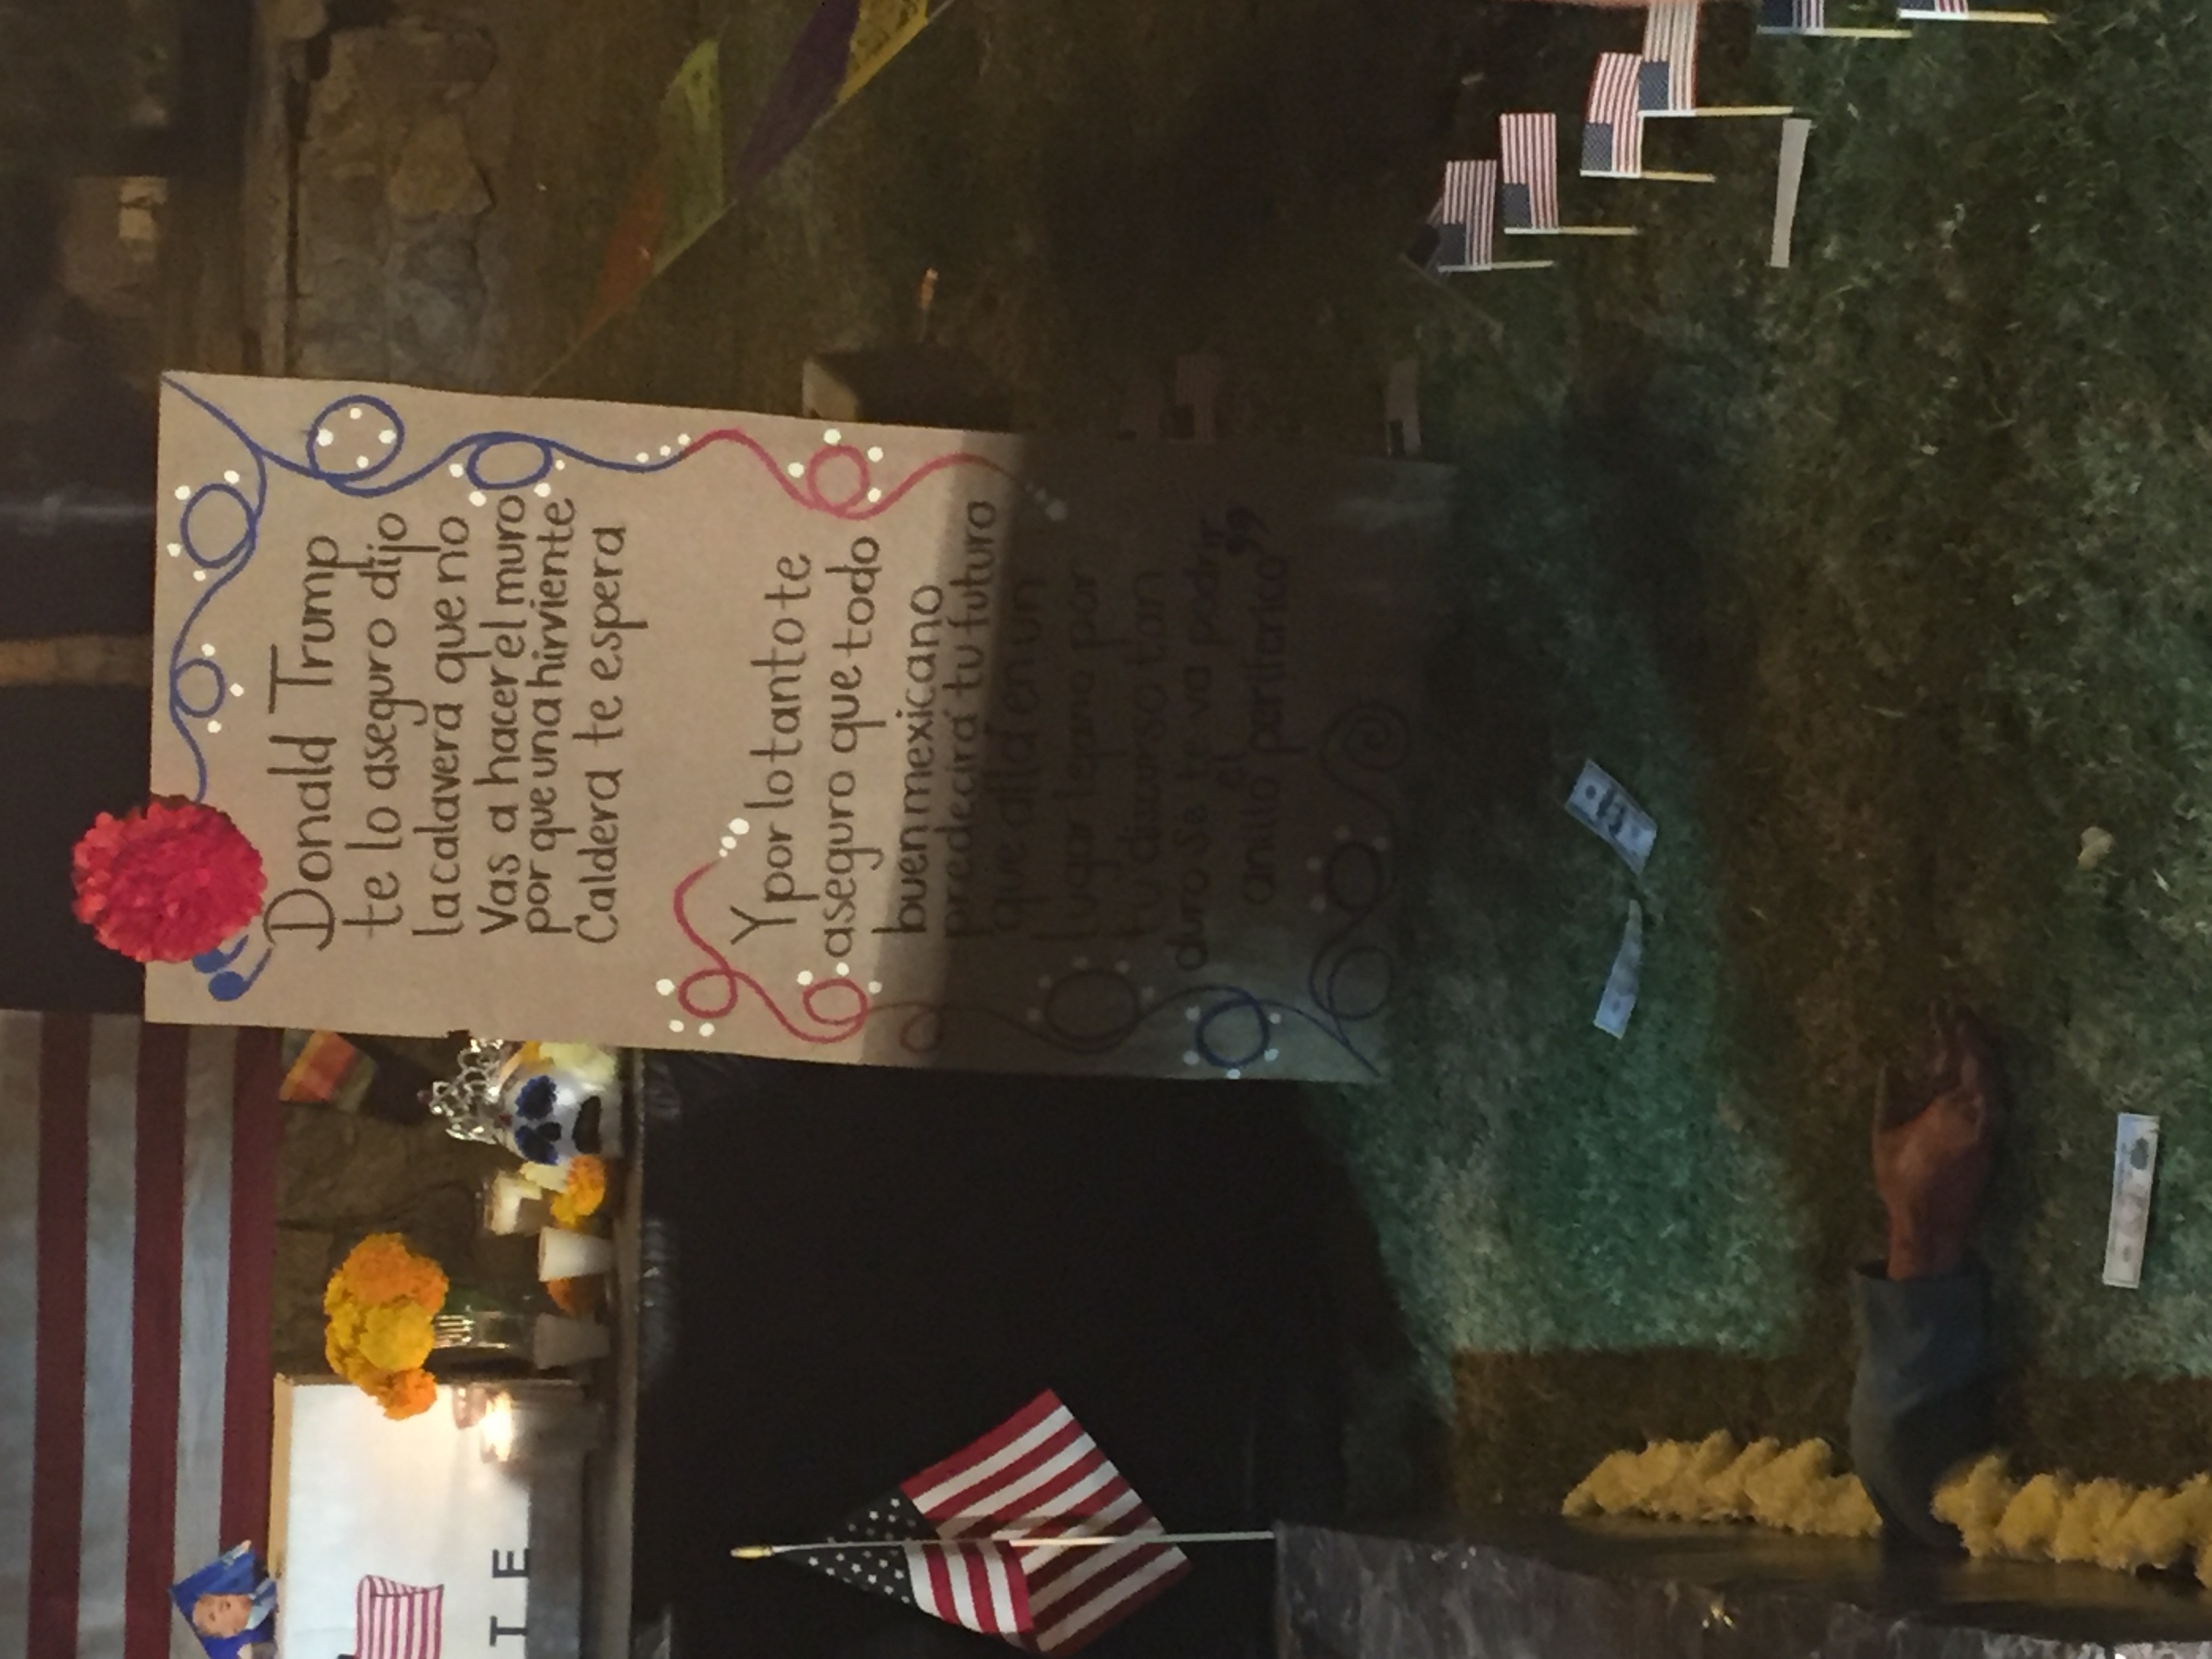 TE
“Donald Trump
te lo aseguro dijo
la calavera que no
Vas a hacer el muro
por que una hirviente
Caldera te espera
Y por lo tanto te
aseguro que todo
buen mexicano
predecirá tu futuro
que allá en un
lugar lejano por
tu discurso tan
duro se te va podrir
el
anillo periferico”